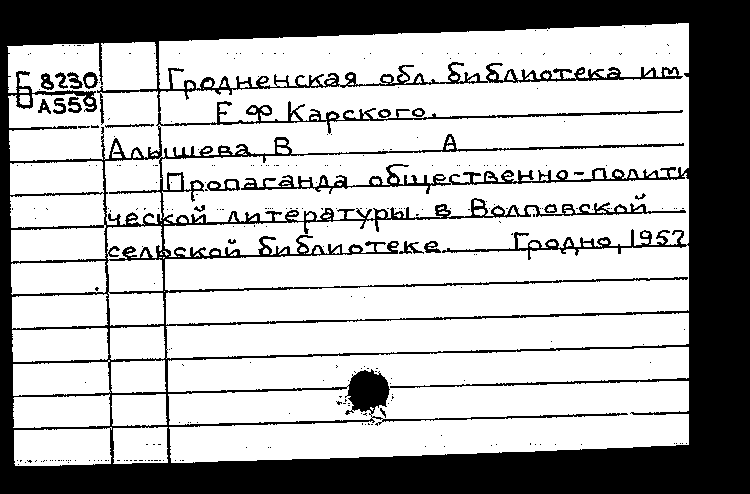 Б 8230
А559
Гродненская обл. библиотека им.
Е.Ф. Карского.
Алышева, В А
Пропаганда общественно-полити
ческой литературы в Волповской
сельской библиотеке. Гродно, 1957